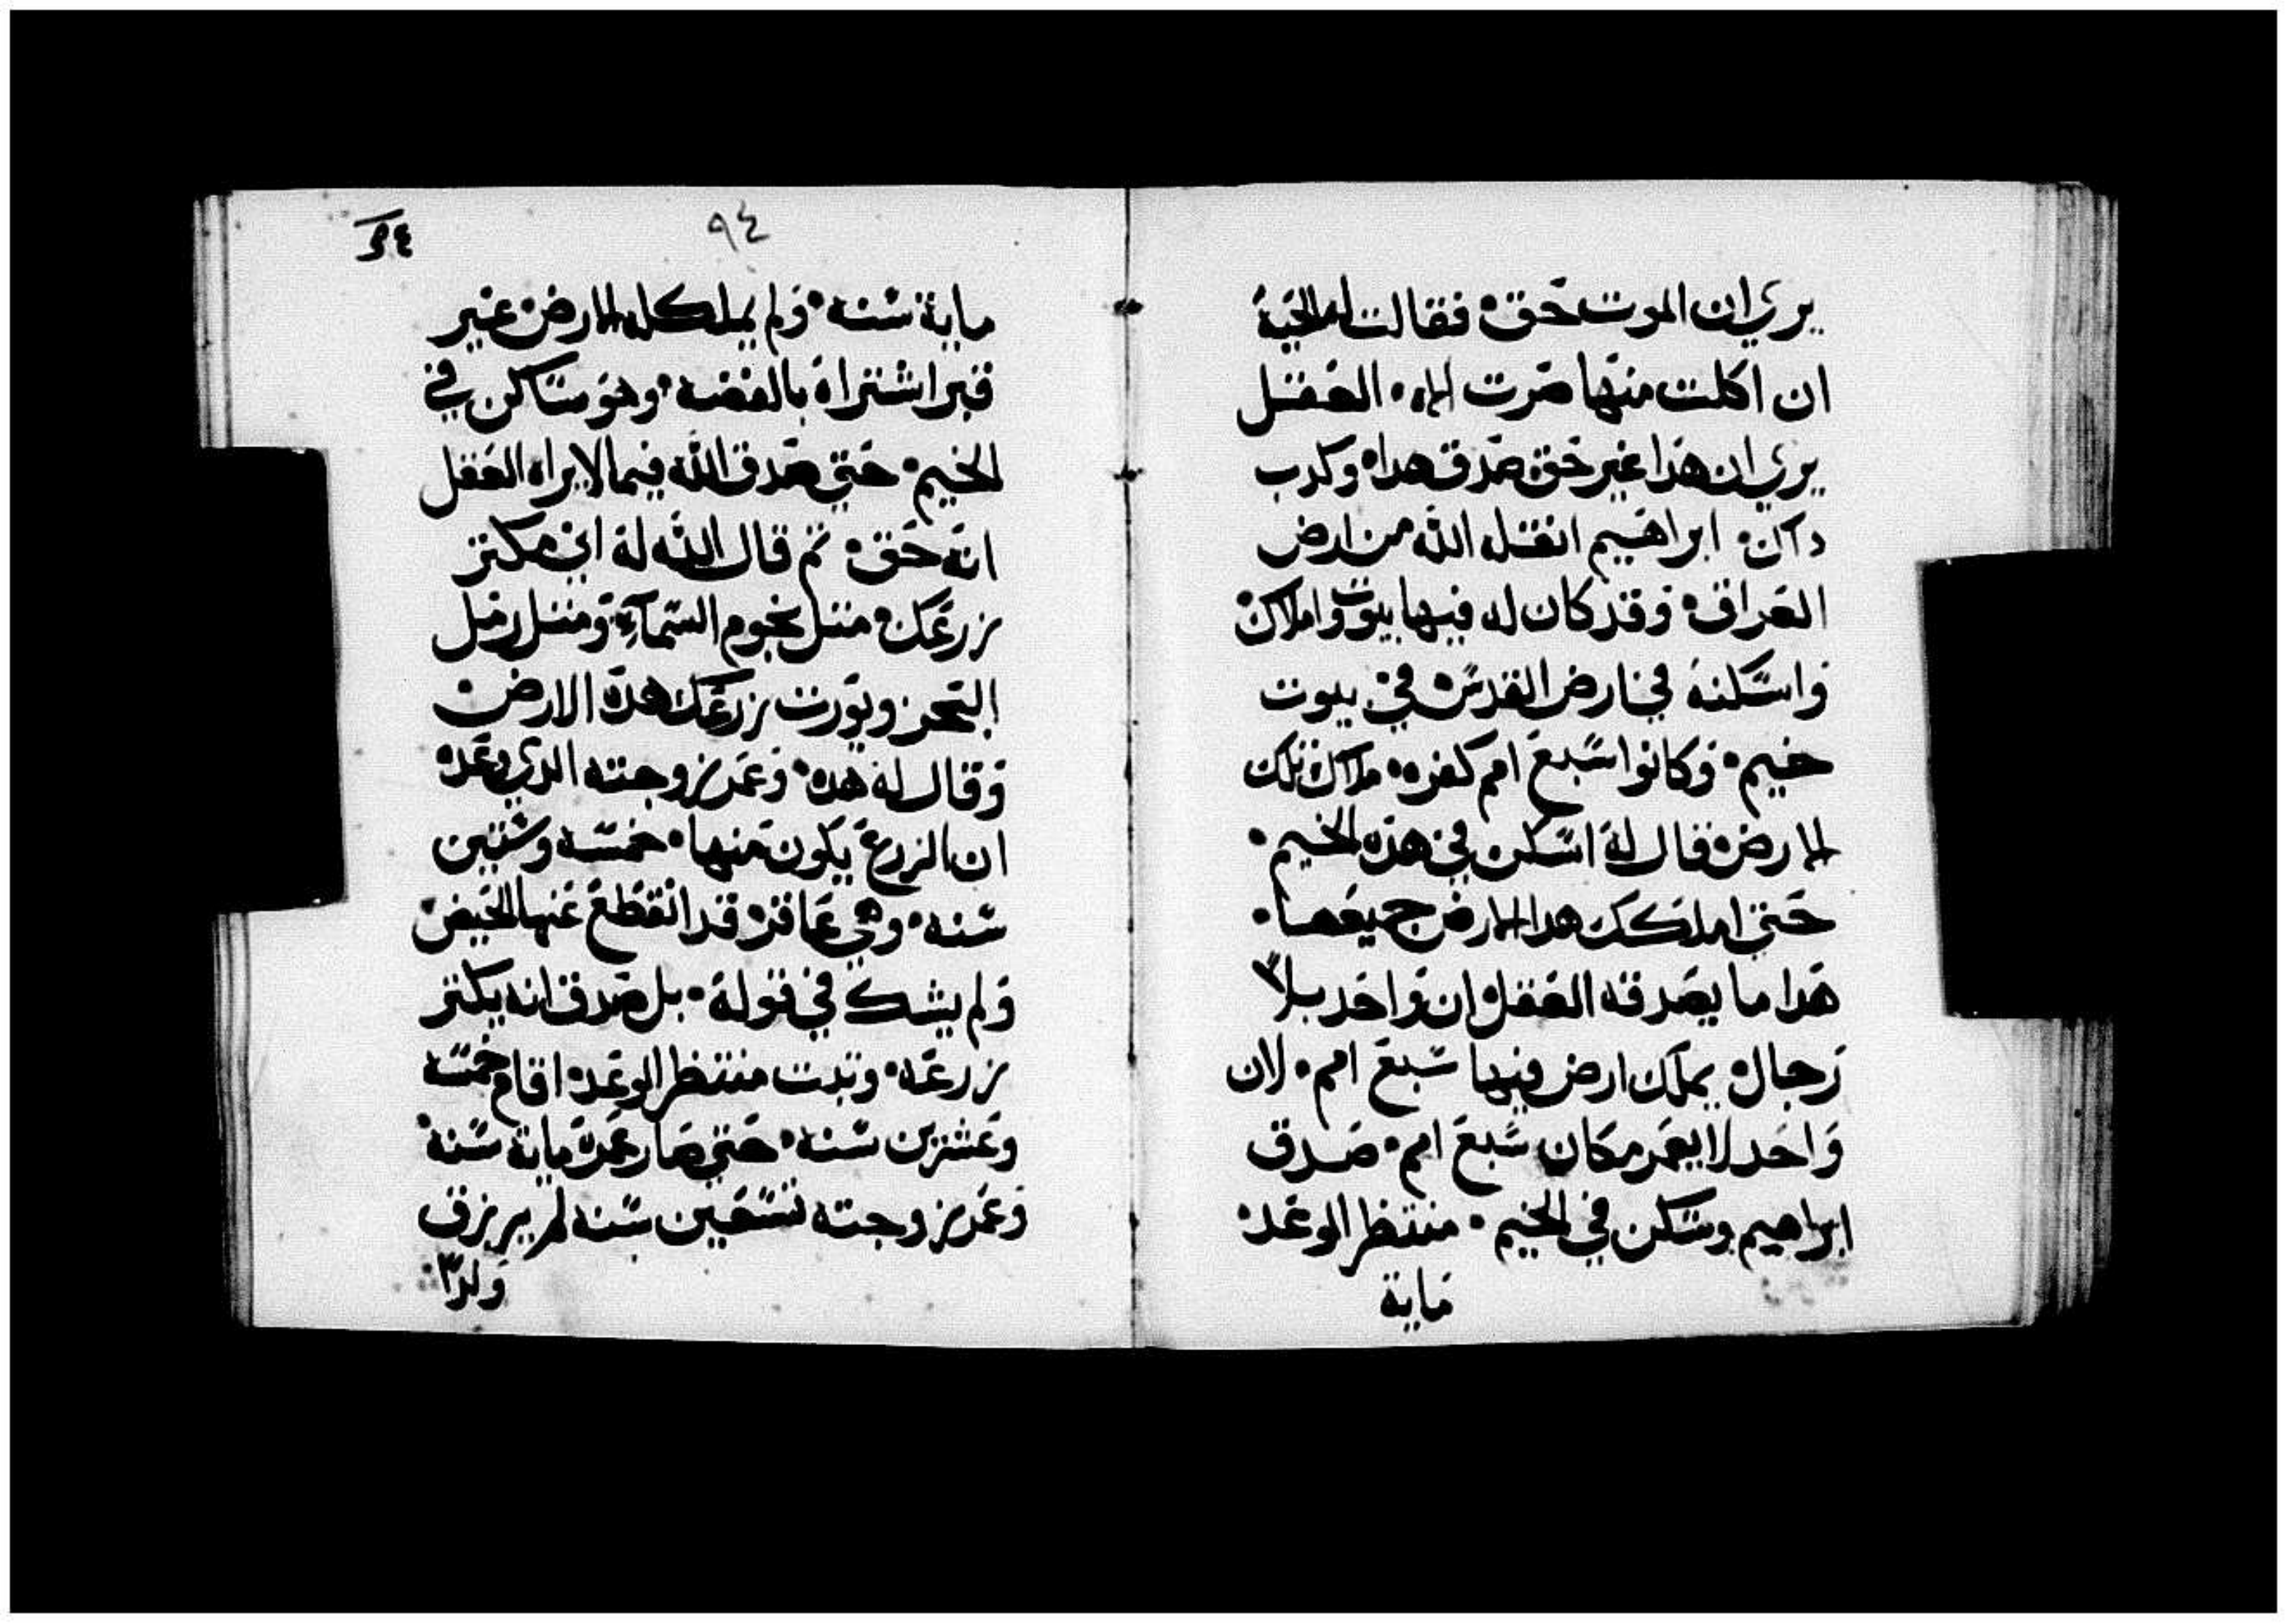 يري ان الموت حق فقالت له الحية
ان اكلت منها صرت اله العقل
يري ان هدا غير حق صدق هدا وكدب
داك ابراهيم انقله الله من ارض
العراق وقد كان له فيها بيوت واملاك
واسكنه في ارض القدس في بيوت
خيم وكانوا سبع امم كفره ملاك تلك
الارض فقال له اسكن في هده الخيم
حتي املكك هدا الارض جميعها
هدا ما يصدقه العقل ان واحد بلا
رجال يملك ارض فيها سبع امم لان
واحد لا يعمر مكان سبع امم صدق
ابراهيم وسكن في الخيم منتظر الوعد
ماية
٩٤
ماية سنه ولم يملك له الارض غير
قبر اشتراه بالفضه وهو ساكن في
الخيم حتي صدق الله فيما لا يراه العقل
انه حق ثم قال الله له اني مكتر
زرعك متل نجوم السمآء ومتل رمل
البحر ويورت زرعك هده الارض
وقال له هده وعمر زوجته الدي وعده
ان الزرع يكون منها خمسه وستين
سنه وهي عاقر قد انقطع عنها الحيض
ولم يشك في قوله بل صدق انه يكتر
زرعه وتبت منتظر الوعد اقام خمسه
وعشرين سنه حتي صار عمره ماية سنه
وعمر زوجته تسعين سنه لم يرزق
ولدا